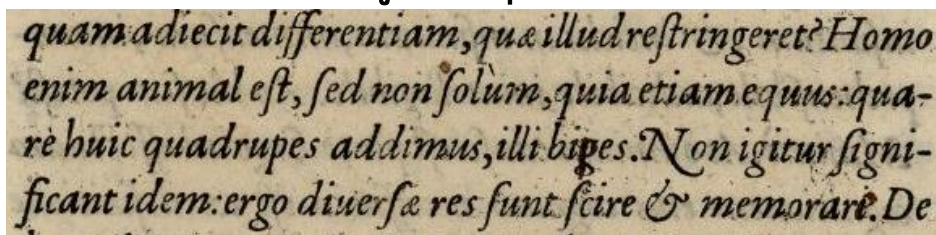 quam adiecit differentiam, quæ illud reſtringeret? Homo
enim animal eſt, ſed non ſolùm, quia etiam equus: qua-
rè huic quadrupes addimus, illi bipes. Non igitur ſigni-
ficant idem: ergo diuerſæ res ſunt ſcire & memorare. De